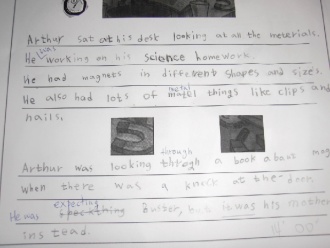 Arthur sat at his desk looking at all the materials.
He was working on his science homework.
He had magnets in different shapes and sizes.
He also had lots of metal things like clips and
nails.
through
Arthur was looking through a book about mag
when there was a knock at the door.
He was expecting Buster, but it was his mother
instead.